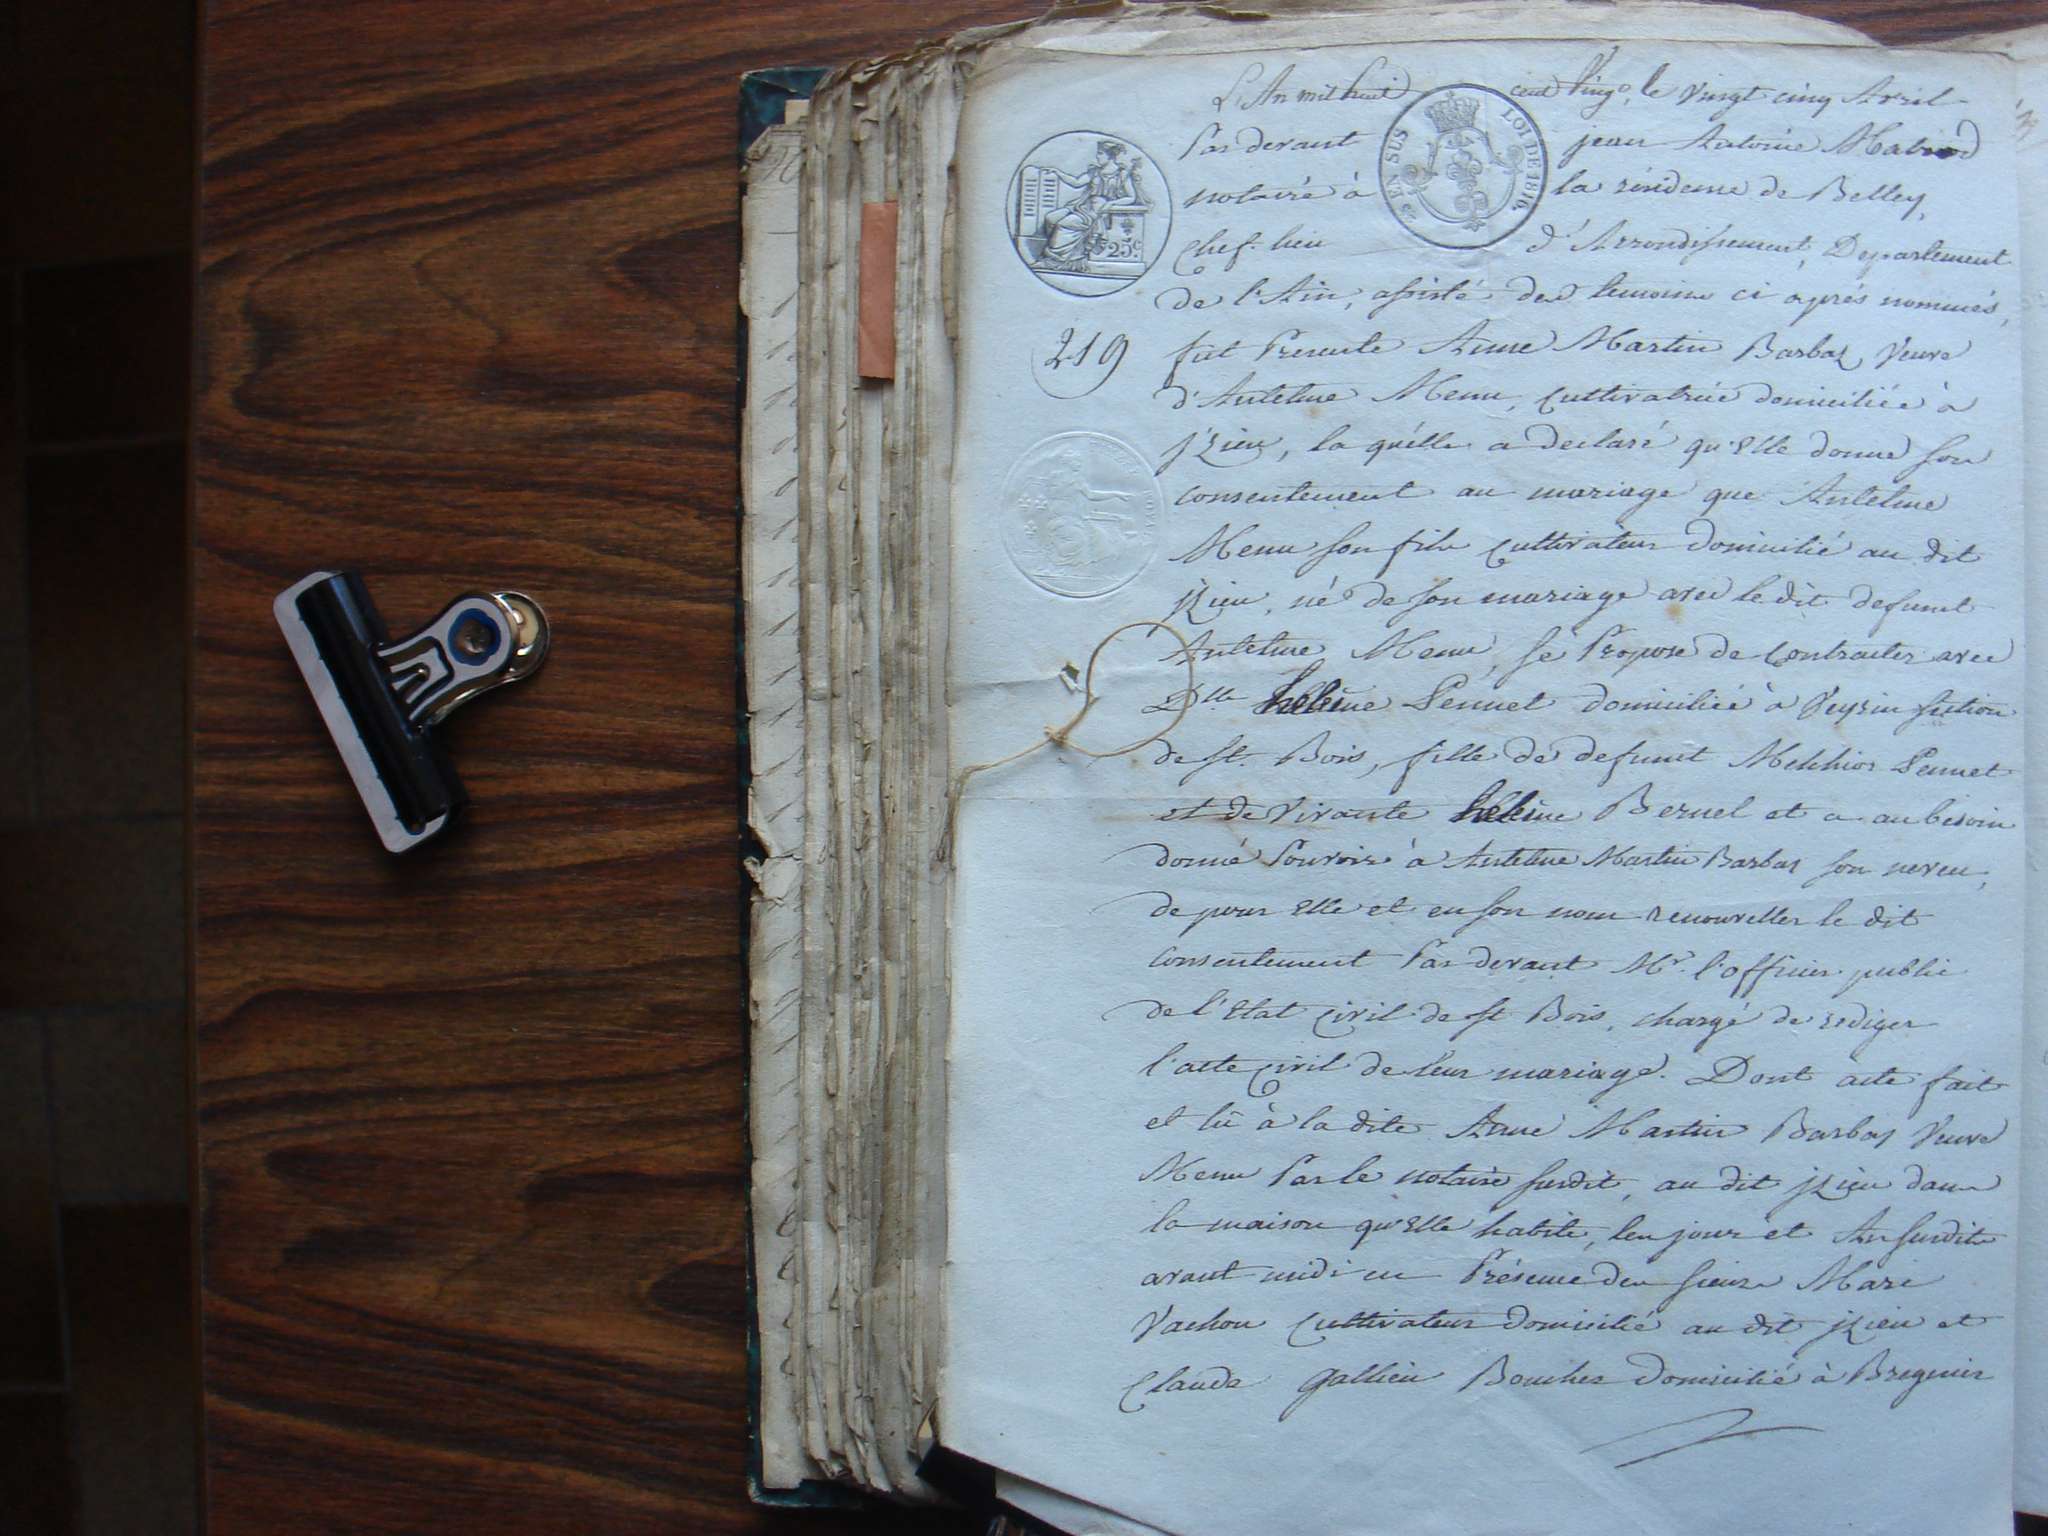 L'An mil huit cent vingt, le vingt cinq Avril
Par devant jean Antoine
notaire à la residence de Belley,
chef-lieu d'Arrondissement, Departement
de l'Ain, assisté des temoins ci après nommés,
fut Presente Anne Martin Barbaz Veuve
d'Antelme Menu, cultivatrice domiciliée à
jzieu, la quélle a declaré qu'Elle donne son
consentement au mariage que Antelme
Menu son fils cultivateur domicilié au dit
jzieu, né de son mariage avec le dit defunt
Antelme Menu, se Propose de Contracter avec
Dlle heléine Pennet domiciliée à Peyzin section
de St. Bois, fille de defunt Melchior Pennet
et de Vivante heléine Bernel et a au besoin
donné Pouvoir à Antelme Martin Barbaz son neveu,
de pour Elle et en son nom renouveller le dit
consentement Par devant Mr. l'officier public
de l'Etat civil de St Bois, chargé de rediger
l'acte civil de leur mariage. Dont acte fait
et lû à la dite Anne Martin Barbaz Veuve
Menu Par le notaire susdit, au dit jzieu dans
la maison qu'Elle habite, les jour et An susdits
avant midi en Présence des sieurs Marie
Vachon cultivateur domicilié au dit jzieu et
Claude Gallien Boucher domicilié à Bregnier
EN SUS
LOI DE 1816.
25 c.
219